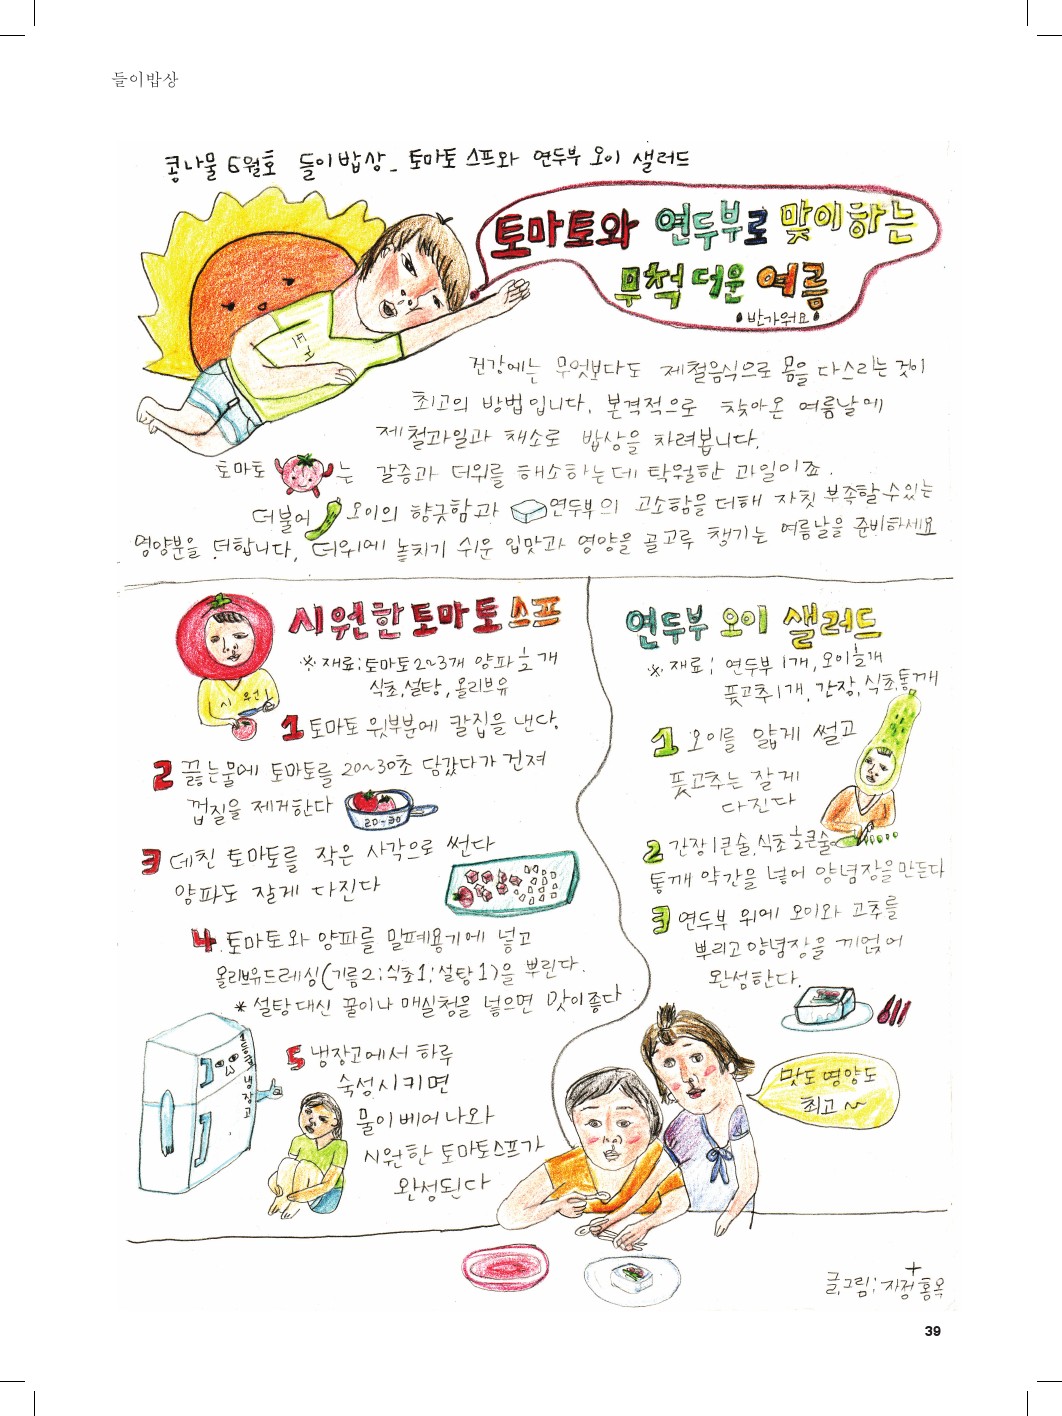 들이밥상
콩나물 6월호 들이밥상_ 토마토 스프와 연두부 오이 샐러드
토마토와 연두부로 맞이하는
무척 더운 여름
반가워요
건강에는 무엇보다도 제철음식으로 몸을 다스리는 것이
최고의 방법입니다. 본격적으로 찾아온 여름날에
제철과일과 채소로 밥상을 차려봅니다.
토마토 는 갈증과 더위를 해소하는데 탁월한 과일이죠.
더불어 오이의 향긋함과 연두부의 고소함을 더해 자칫 부족할 수 있는
영양분을 더합니다. 더위에 놓치기 쉬운 입맛과 영양을 골고루 챙기는 여름날을 준비하세요
시원한 토마토 스프
※ 재료; 토마토 2~3개 양파 ½개
식초, 설탕, 올리브유
시 원
1 토마토 윗부분에 칼집을 낸다.
2 끓는물에 토마토를 20~30초 담갔다가 건져
껍질을 제거한다
20-30
3 데친 토마토를 작은 사각으로 썬다
양파도 잘게 다진다
4. 토마토와 양파를 밀폐용기에 넣고
올리브유드레싱(기름2; 식초1; 설탕1)을 뿌린다.
* 설탕대신 꿀이나 매실청을 넣으면 맛이좋다
5 냉장고에서 하루
숙성시키면
물이 베어 나와
시원한 토마토스프가
완성된다
1등급 냉장고
연두부 오이 샐러드
※ 재료; 연두부 1개, 오이½개
풋고추1개, 간장, 식초, 통깨
1 오이를 얇게 썰고
풋고추는 잘게
다진다
2 간장1큰술, 식초½큰술
통깨 약간을 넣어 양념장을 만든다
3 연두부 위에 오이와 고추를
뿌리고 양념장을 끼얹어
완성한다.
맛도 영양도
최고~
글,그림; 지정홍옥
39